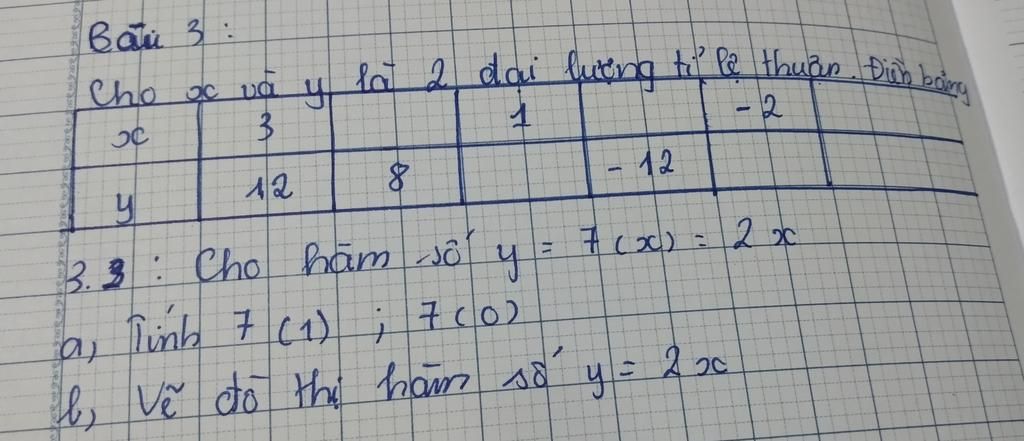 Bài 3 :
Cho x và y là 2 đại lượng tỉ lệ thuận. Điền bảng
x 3 1 -2
y 12 8 -12
3.3 : Cho hàm số y = f(x) = 2x
a, Tính f(1) ; f(0)
b, Vẽ đồ thị hàm số y = 2x